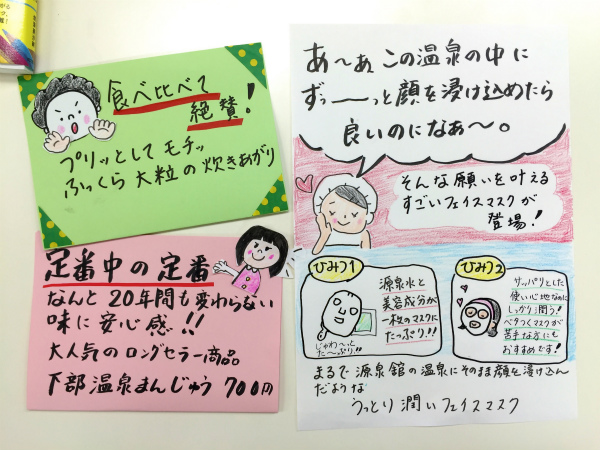 食べ比べて
絶賛!
プリッとして モチッ
ふっくら 大粒の炊きあがり
定番中の定番
なんと 20年間も変わらない
味に安心感!!
大人気の ロングセラー商品
下部温泉まんじゅう 700円
あ〜ぁ この温泉の中に
ずっ――っと顔を浸け込めたら
良いのになぁ〜。
そんな願いを叶える
すごいフェイスマスクが
登場!
ひみつ1
源泉水と
美容成分が
一枚のマスクに
たっぷり!!
じゅわ〜っと
た〜ぷり!!
ひみつ2
サッパリとした
使い心地なのに
しっかり潤う!
ベタつくマスクが
苦手な方にも
おすすめです!
まるで源泉舘の温泉にそのまま顔を浸け込ん
だような
うっとり潤いフェイスマスク